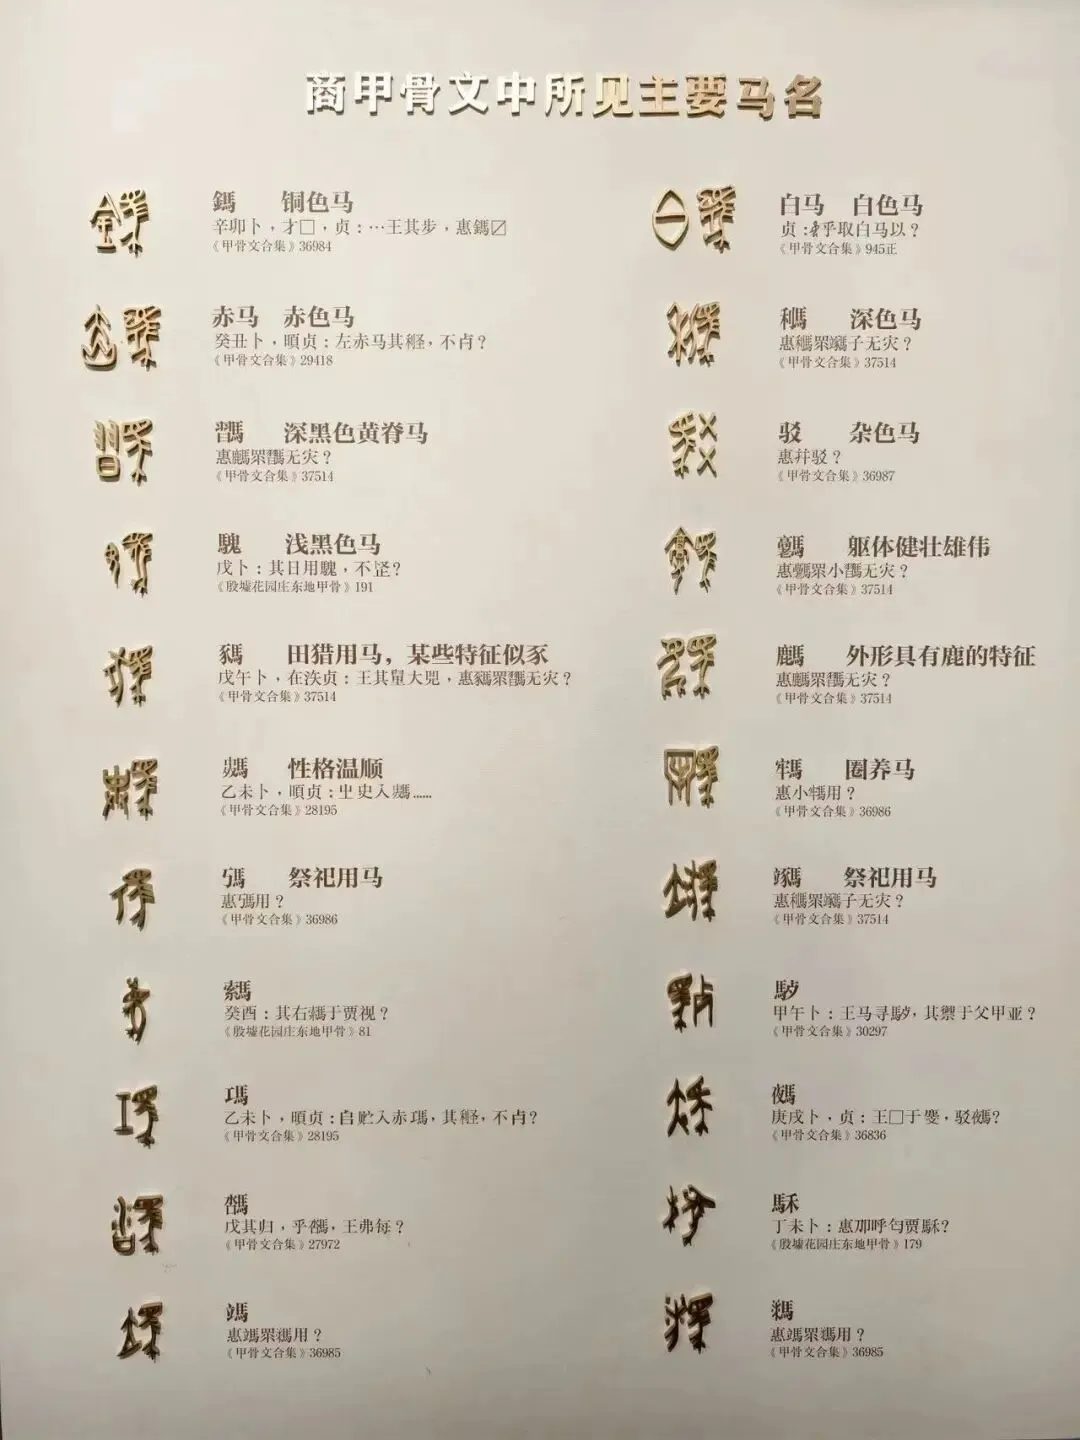 商甲骨文中所见主要马名
鎷 铜色马
辛卯卜，才□，贞：…王其步，惠鎷〼
《甲骨文合集》36984
赤马 赤色马
癸丑卜，暊贞：左赤马其，不？
《甲骨文合集》29418
深黑色黄脊马
惠眔无灾？
《甲骨文合集》37514
騩 浅黑色马
戊卜：其日用騩，不？
《殷墟花园庄东地甲骨》191
田猎用马，某些特征似豕
戊午卜，在贞：王其大兕，惠眔无灾？
《甲骨文合集》37514
性格温顺
乙未卜，暊贞：史入……
《甲骨文合集》28195
祭祀用马
惠用？
《甲骨文合集》36986
癸酉：其右于贾视？
《殷墟花园庄东地甲骨》81
乙未卜，暊贞：贮入赤，其，不？
《甲骨文合集》28195
戊其归，乎，王弗每？
《甲骨文合集》27972
惠眔用？
《甲骨文合集》36985
白马 白色马
贞：乎取白马以？
《甲骨文合集》945正
深色马
惠眔子无灾？
《甲骨文合集》37514
驳 杂色马
惠并驳？
《甲骨文合集》36987
躯体健壮雄伟
惠眔小无灾？
《甲骨文合集》37514
外形具有鹿的特征
惠眔无灾？
《甲骨文合集》37514
圈养马
惠小用？
《甲骨文合集》36986
祭祀用马
惠眔子无灾？
《甲骨文合集》37514
甲午卜：王马寻，其禦于父甲亚？
《甲骨文合集》30297
庚戌卜，贞：王□于，驳？
《甲骨文合集》36836
丁未卜：惠呼匄贾？
《殷墟花园庄东地甲骨》179
惠眔用？
《甲骨文合集》36985